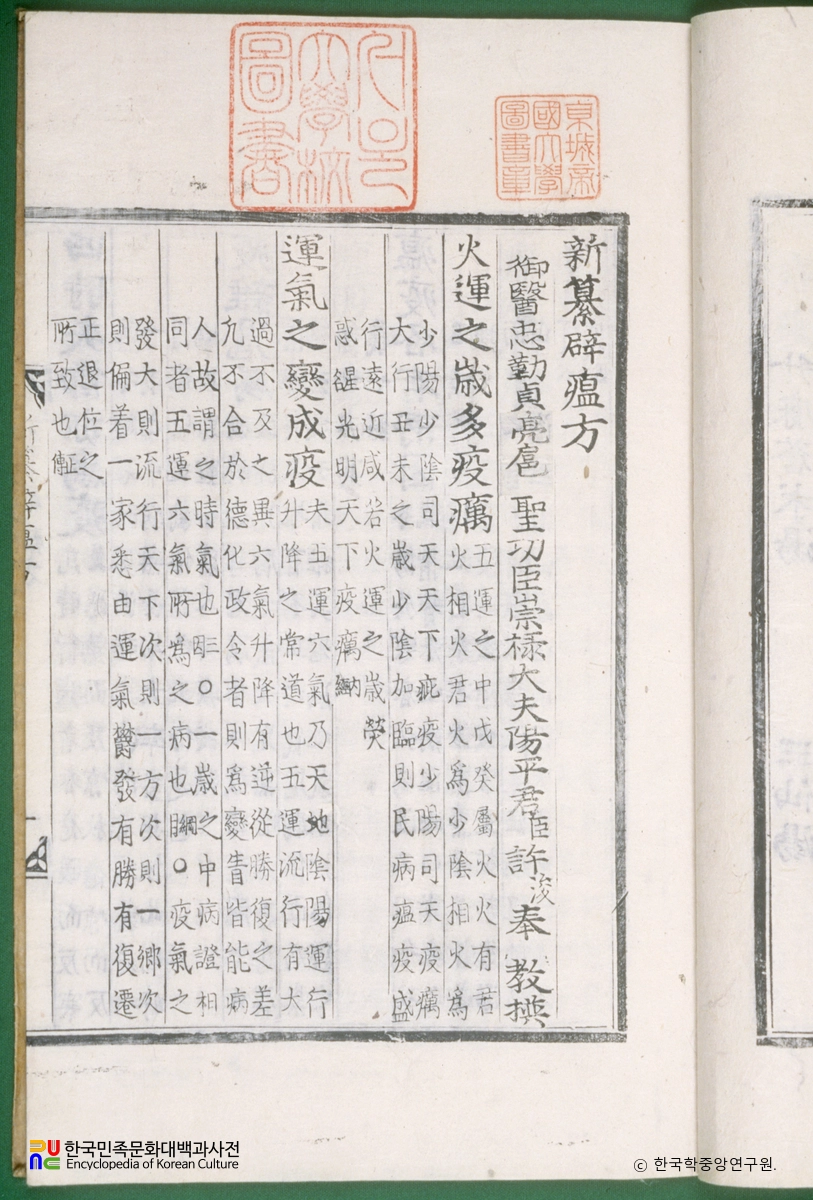 新纂辟瘟方
御醫忠勤貞亮扈 聖功臣崇祿大夫陽平君臣許浚奉 敎撰
火運之歲多疫癘
五運之中戊癸屬火火有君
火相火君火爲少陰相火爲
少陽少陰司天天下疵疫少陽司天疫癘
大行丑未之歲少陰加臨則民病瘟疫盛
行遠近咸若火運之歲熒
惑𤯝光明天下疫癘
運氣之變成疫
夫五運六氣乃天地陰陽運行
升降之常道也五運流行有大
過不及之異六氣升降有逆從勝復之差
凢不合於德化政令者則爲變眚皆能病
人故謂之時氣也 ○一歲之中病證相
同者五運六氣所爲之病也綱目○疫氣之
發大則流行天下次則一方次則一鄉次
則偏着一家悉由運氣鬱發有勝有復遷
正退位之
所致也正傳
新纂辟瘟方
一
京城帝
國大學
圖書章
大學校
圖書
한국민족문화대백과사전
Encyclopedia of Korean Culture
ⓒ 한국학중앙연구원.